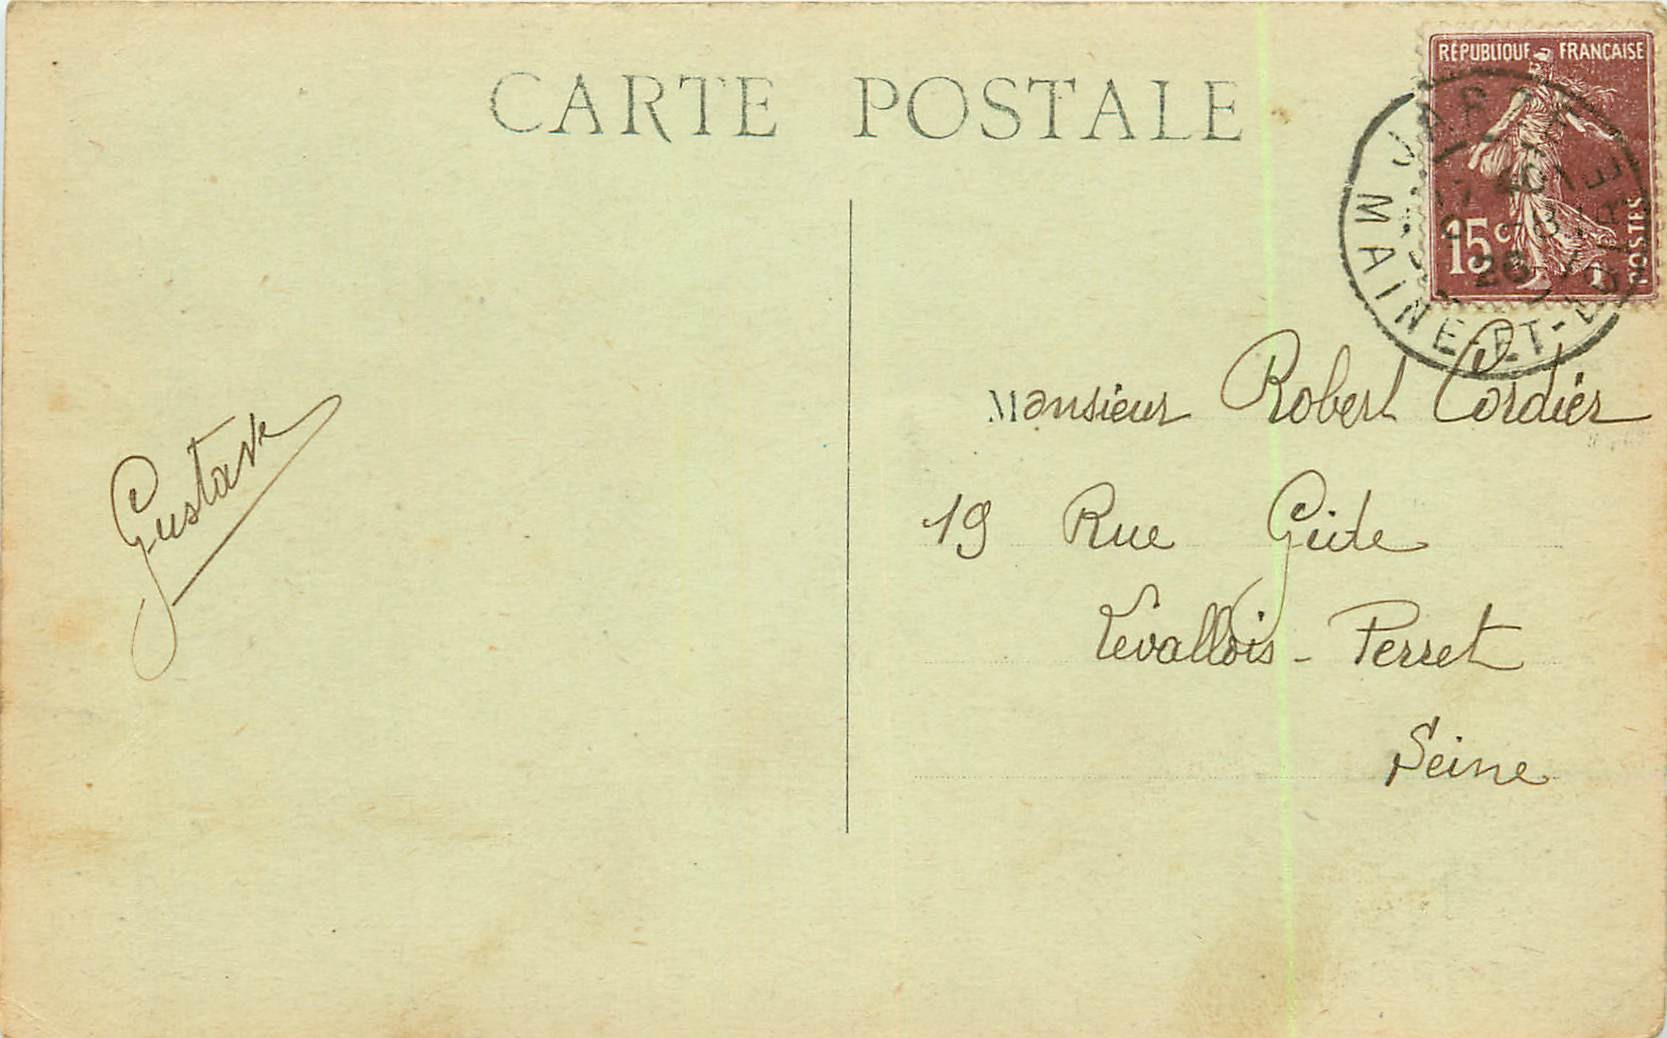 CARTE POSTALE
RÉPUBLIQUE FRANÇAISE
15c
POSTES
MAINE-ET-LOIRE
26
Monsieur Robert Cordier
19 Rue Gide
Levallois - Perret
Seine
Gustave